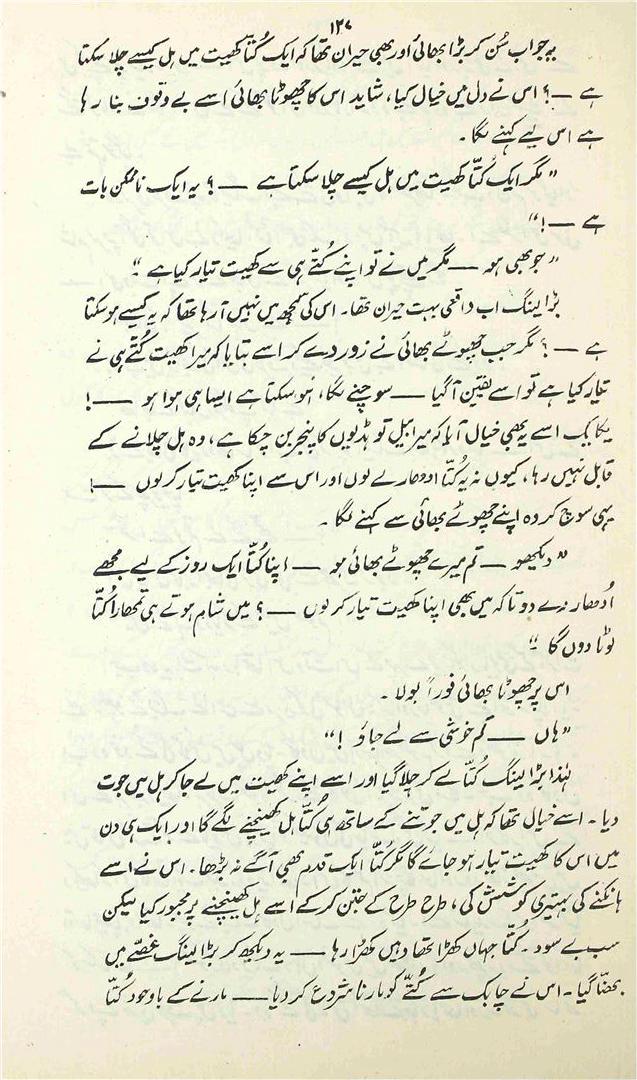 ۱۲۷
یہ جواب سُن کر بڑا بھائی اور بھی حیران تھا کہ ایک کُتّا کھیت میں ہل کیسے چلا سکتا
ہے ——؟ اس نے دل میں خیال کیا، شاید اس کا چھوٹا بھائی اسے بے وقوف بنا رہا
ہے اس لیے کہنے لگا۔
”مگر ایک کُتّا کھیت میں ہل کیسے چلا سکتا ہے ——؟ یہ ایک ناممکن بات
ہے ——!“
”جو بھی ہو —— مگر میں نے تو اپنے کُتّے ہی سے کھیت تیار کیا ہے۔“
بڑا لینگ اب واقعی بہت حیران تھا۔ اس کی سمجھ میں نہیں آ رہا تھا کہ یہ کیسے ہو سکتا
ہے ——؟ مگر جب چھوٹے بھائی نے زور دے کر اسے بتایا کہ میرا کھیت کُتّے ہی نے
تیار کیا ہے تو اسے یقین آ گیا —— سوچنے لگا، ہو سکتا ہے ایسا ہی ہوا ہو ——!
یکایک اسے یہ بھی خیال آیا کہ میرا بیل تو ہڈیوں کا پنجر بن چکا ہے، وہ ہل چلانے کے
قابل نہیں رہا، کیوں نہ یہ کُتّا ادھار لے لوں اور اس سے اپنا کھیت تیار کر لوں ——!
یہی سوچ کر وہ اپنے چھوٹے بھائی سے کہنے لگا۔
”دیکھو —— تم میرے چھوٹے بھائی ہو —— اپنا کُتّا ایک روز کے لیے مجھے
اُدھار دے دو تاکہ میں بھی اپنا کھیت تیار کر لوں ——؟ میں شام ہوتے ہی تمھارا کُتّا
لوٹا دوں گا۔“
اس پر چھوٹا بھائی فوراً بولا۔
”ہاں —— تم خوشی سے لے جاؤ!“
لہٰذا بڑا لینگ کُتّا لے کر چلا گیا اور اسے اپنے کھیت میں لے جا کر ہل میں جوت
دیا۔ اسے خیال تھا کہ ہل میں جوتنے کے ساتھ ہی کُتّا ہل کھینچنے لگے گا اور ایک ہی دن
میں اس کا کھیت تیار ہو جائے گا مگر کُتّا ایک قدم بھی آگے نہ بڑھا۔ اس نے اسے
ہانکنے کی بہتری کوشش کی، طرح طرح کے جتن کر کے اسے ہل کھینچنے پر مجبور کیا لیکن
سب بے سود۔ کُتّا جہاں کھڑا تھا وہیں کھڑا رہا —— یہ دیکھ کر بڑا لینگ غصّے میں
بھنّا گیا۔ اس نے چابک سے کُتّے کو مارنا شروع کر دیا —— مارنے کے باوجود کُتّا